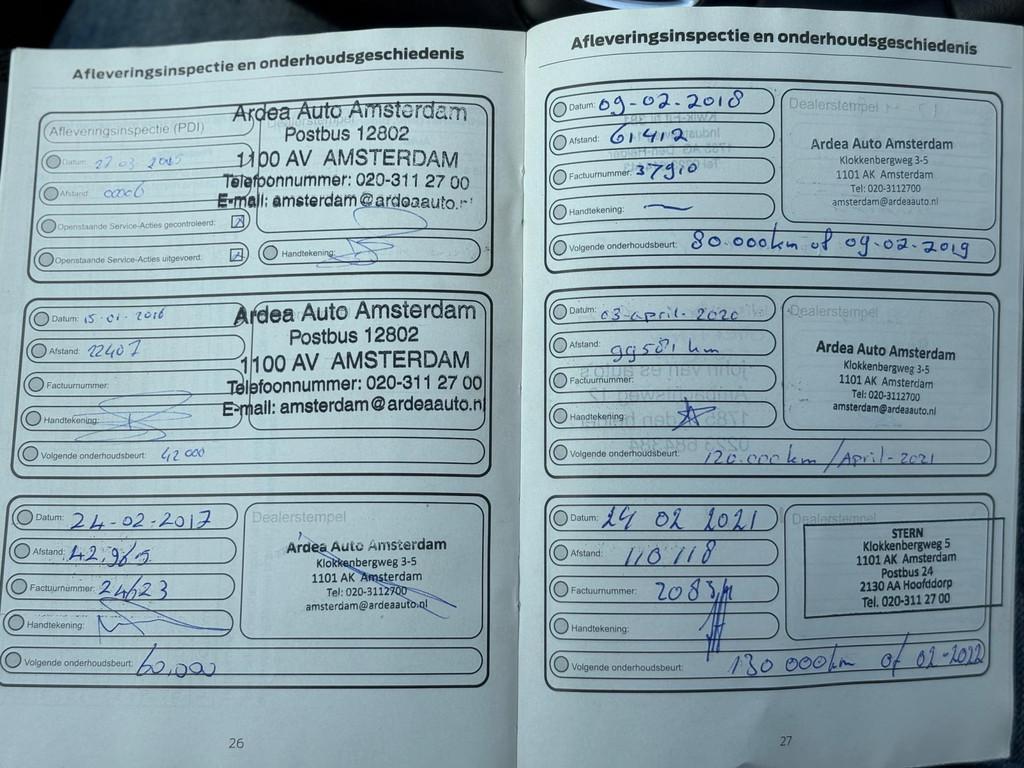 Afleveringsinspectie en onderhoudsgeschiedenis
Afleveringsinspectie (PDI)
Datum: 27 03 2015
Afstand: 00006
Openstaande Service-Acties gecontroleerd:
Openstaande Service-Acties uitgevoerd:
Ardea Auto Amsterdam
Postbus 12802
1100 AV AMSTERDAM
Telefoonnummer: 020-311 27 00
E-mail: amsterdam@ardeaauto.
Handtekening:
Datum: 15-01-2016
Afstand: 22407
Factuurnummer:
Handtekening:
Ardea Auto Amsterdam
Postbus 12802
1100 AV AMSTERDAM
Telefoonnummer: 020-311 27 00
E-mail: amsterdam@ardeaauto.nl
Volgende onderhoudsbeurt: 42000
Datum: 24-02-2017
Afstand: 42.965
Factuurnummer:
Handtekening:
Dealerstempel
Ardea Auto Amsterdam
Klokkenbergweg 3-5
1101 AK Amsterdam
Tel: 020-3112700
amsterdam@ardeaauto.nl
Volgende onderhoudsbeurt: 60,000
26
Afleveringsinspectie en onderhoudsgeschiedenis
Datum: 09-02-2018
Afstand: 61412
Factuurnummer: 37910
Handtekening:
Dealerstempel
Ardea Auto Amsterdam
Klokkenbergweg 3-5
1101 AK Amsterdam
Tel: 020-3112700
amsterdam@ardeaauto.nl
Volgende onderhoudsbeurt: 80.000km of 09-02-2019
Datum: 03 april-2020
Afstand: 99581 km
Factuurnummer:
Handtekening:
Dealerstempel
Ardea Auto Amsterdam
Klokkenbergweg 3-5
1101 AK Amsterdam
Tel: 020-3112700
amsterdam@ardeaauto.nl
Volgende onderhoudsbeurt: 120.000km/April-2021
Datum: 24 02 2021
Afstand: 110118
Factuurnummer:
Handtekening:
Dealerstempel
STERN
Klokkenbergweg 5
1101 AK Amsterdam
Postbus 24
2130 AA Hoofddorp
Tel. 020-311 27 00
Volgende onderhoudsbeurt: 130 000km of 02-2022
27